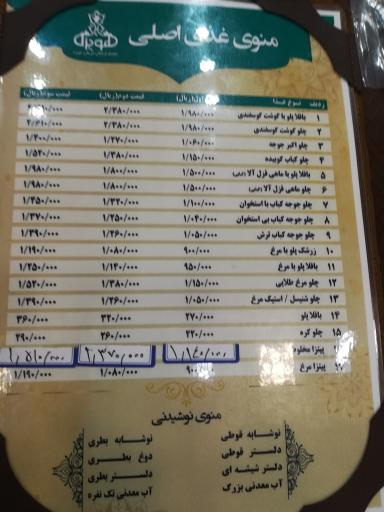 منوی غذای اصلی
ردیف نوع غذا (ریال) قیمت دوم(ریال) قیمت سوم(ریال)
۱ باقلا پلو با گوشت گوسفندی ۱/۹۸۰/۰۰۰ ۲/۳۸۰/۰۰۰
۲ چلو گوشت گوسفندی ۱/۹۸۰/۰۰۰ ۲/۳۸۰/۰۰۰ ۲/۶۱۰/۰۰۰
۳ چلو اکبر جوجه ۱/۰۶۰/۰۰۰ ۱/۲۷۰/۰۰۰ ۱/۴۰۰/۰۰۰
۴ چلو کباب کوبیده ۱/۱۵۰/۰۰۰ ۱/۳۸۰/۰۰۰ ۱/۵۲۰/۰۰۰
۵ باقلا پلو با ماهی قزل آلا ۱/۵۰۰/۰۰۰ ۱/۸۰۰/۰۰۰ ۱/۹۸۰/۰۰۰
۶ چلو ماهی قزل آلا ۱/۵۰۰/۰۰۰ ۱/۸۰۰/۰۰۰ ۱/۹۸۰/۰۰۰
۷ چلو جوجه کباب با استخوان ۱/۱۰۰/۰۰۰ ۱/۳۲۰/۰۰۰ ۱/۴۵۰/۰۰۰
۸ چلو جوجه کباب بی استخوان ۱/۰۴۰/۰۰۰ ۱/۲۵۰/۰۰۰ ۱/۳۷۰/۰۰۰
۹ چلو جوجه کباب ترش ۱/۰۵۰/۰۰۰ ۱/۲۶۰/۰۰۰ ۱/۳۹۰/۰۰۰
۱۰ زرشک پلو با مرغ ۹۰۰/۰۰۰ ۱/۰۸۰/۰۰۰ ۱/۱۹۰/۰۰۰
۱۱ باقلا پلو با مرغ ۹۵۰/۰۰۰ ۱/۱۴۰/۰۰۰ ۱/۲۵۰/۰۰۰
۱۲ چلو مرغ طلایی ۱/۱۵۰/۰۰۰ ۱/۳۸۰/۰۰۰ ۱/۵۲۰/۰۰۰
۱۳ چلو شنیسل / استیک مرغ ۱/۰۵۰/۰۰۰ ۱/۲۶۰/۰۰۰ ۱/۳۹۰/۰۰۰
۱۴ باقلا پلو ۲۷۰/۰۰۰ ۳۲۰/۰۰۰ ۳۶۰/۰۰۰
۱۵ چلو کره ۲۲۰/۰۰۰ ۲۶۰/۰۰۰ ۲۹۰/۰۰۰
پیتزا مخلوط ۱,۱۴۰,۰۰۰ ۱,۳۷۰,۰۰۰ ۱,۵۱۰,۰۰۰
پیتزا مرغ ۱/۰۸۰/۰۰۰ ۱/۱۹۰/۰۰۰
منوی نوشیدنی
نوشابه قوطی نوشابه بطری
دلستر قوطی دوغ بطری
دلستر شیشه ای دلستر بطری
آب معدنی بزرگ آب معدنی تک نفره